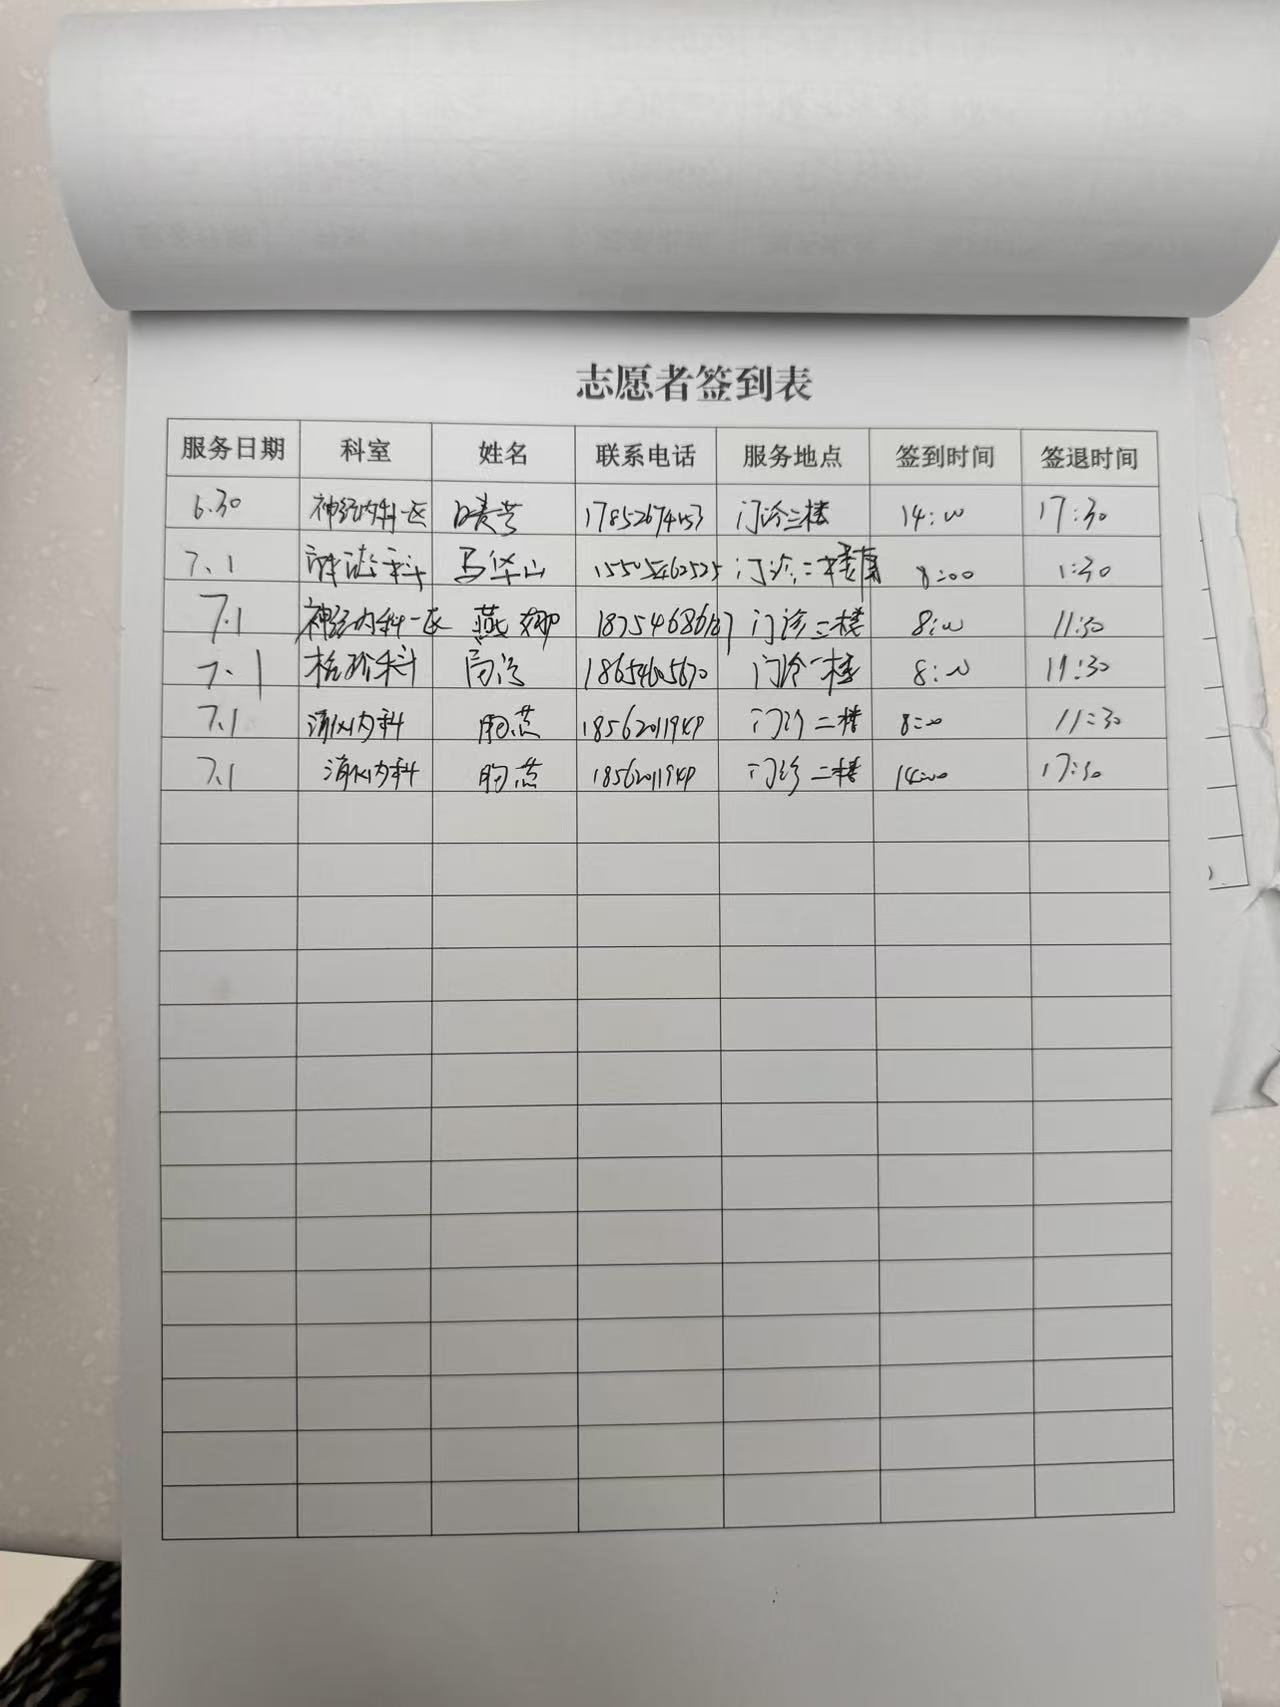 志愿者签到表
服务日期 科室 姓名 联系电话 服务地点 签到时间 签退时间
6.30 神经内科一区 门诊三楼 14:00 17:30
7.1 马华山 15505462525 门诊二楼 8:00 1:30
7.1 神经内科一区 燕娜 18754686187 门诊三楼 8:00 11:30
7.1 检验科 门诊一楼 8:00 11:30
7.1 消化内科 门诊二楼 8:00 11:30
7.1 消化内科 门诊二楼 14:00 17:30